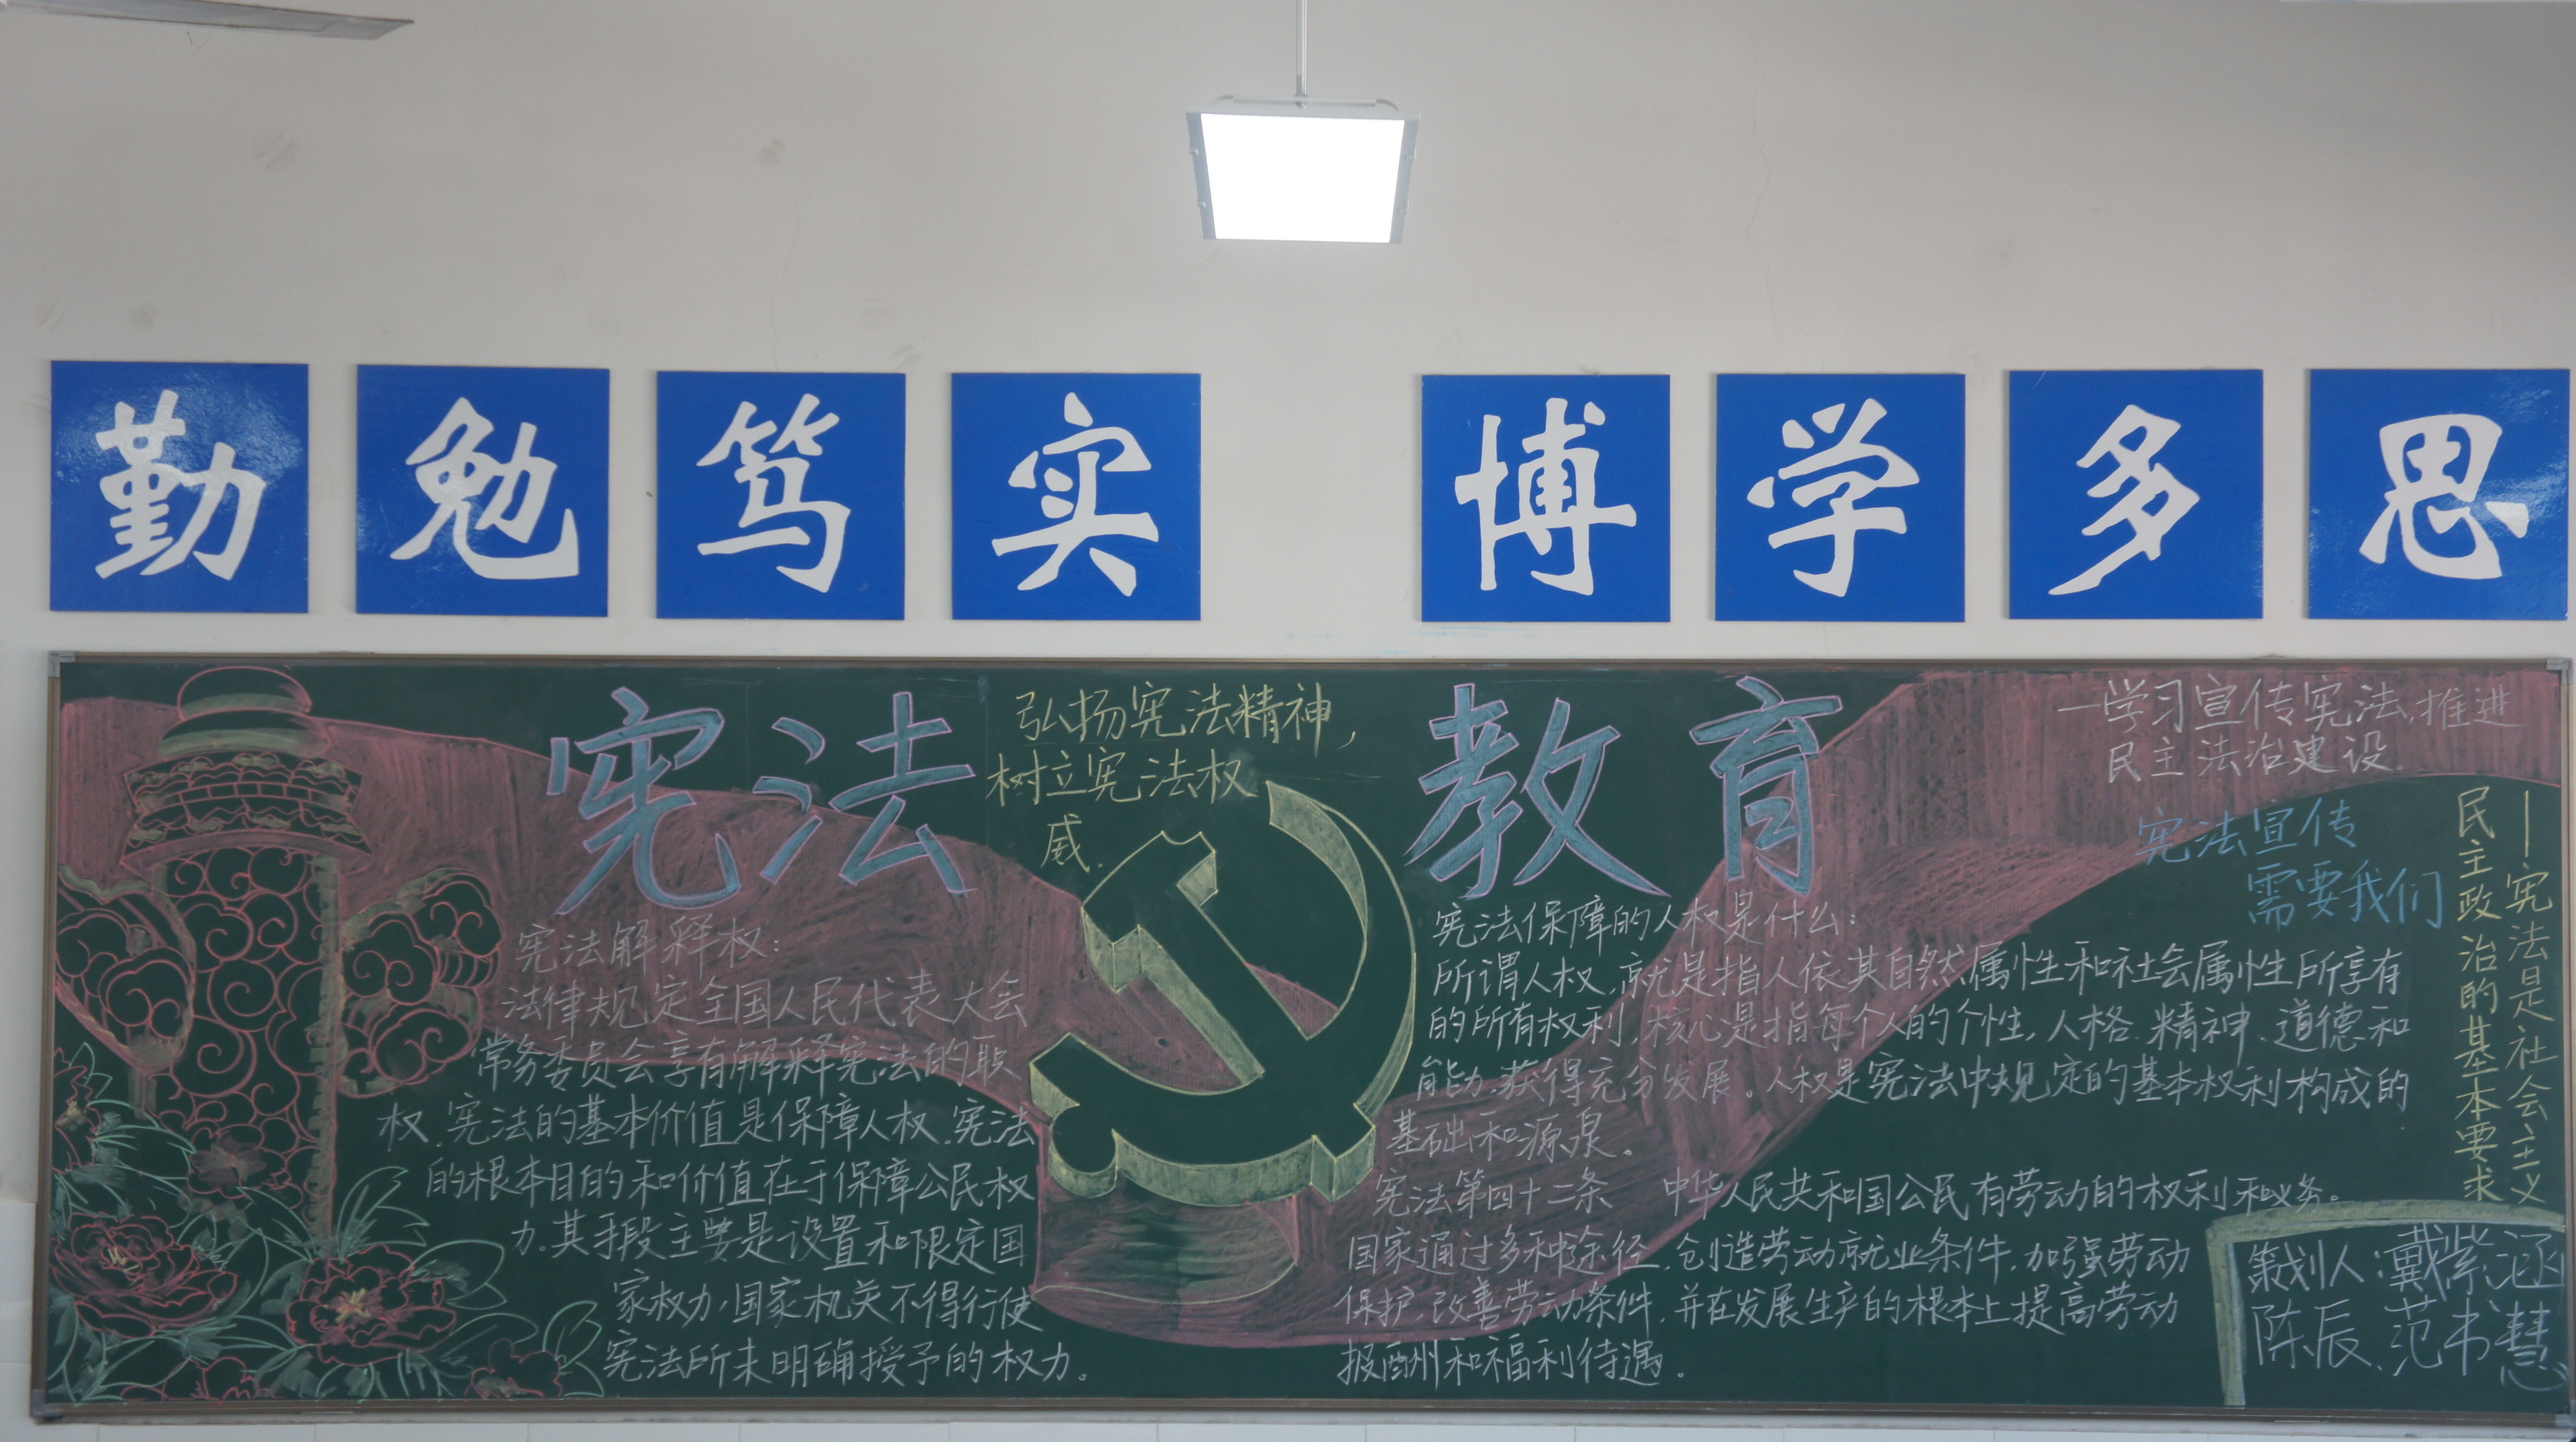 勤勉笃实 博学多思
宪法教育
弘扬宪法精神，
树立宪法权
威.
一学习宣传宪法,推进
民主法治建设.
宪法宣传
需要我们
—宪法是社会主义
民主政治的基本要求
宪法解释权:
法律规定全国人民代表大会
常务委员会享有解释宪法的职
权.宪法的基本价值是保障人权.宪法
的根本目的和价值在于保障公民权
力.其手段主要是设置和限定国
家权力,国家机关不得行使
宪法所未明确授予的权力。
宪法保障的人权是什么:
所谓人权,就是指人依其自然属性和社会属性所享有
的所有权利,核心是指每个人的个性,人格.精神、道德和
能力获得充分发展。人权是宪法中规定的基本权利构成的
基础和源泉。
宪法第四十二条 中华人民共和国公民有劳动的权利和义务。
国家通过多种途径,创造劳动就业条件,加强劳动
保护,改善劳动条件,并在发展生产的根本上提高劳动
报酬和福利待遇。
策划人:戴紫涵
陈辰.范书慧